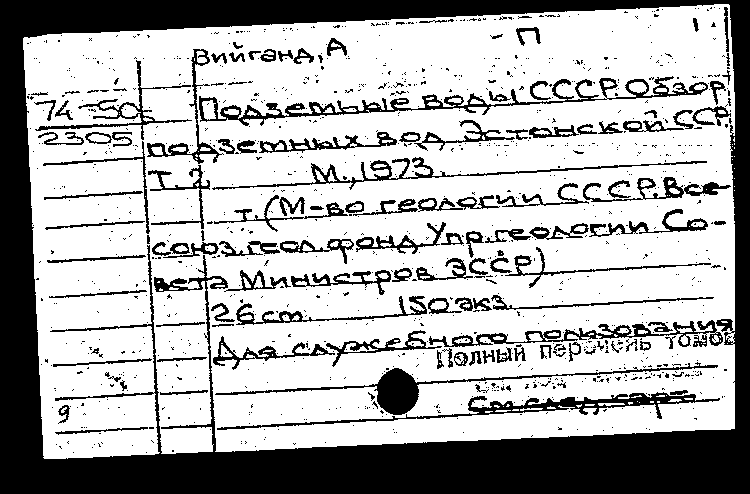 Вийганд, А - П 1.
74-50
2305
Подземные воды СССР. Обзор
подземных вод Эстонской ССР
Т. 2 М., 1973.
т. (М-во геологии СССР. Все-
союз. геол. фонд. Упр. геологии Со-
вета Министров ЭССР)
26 см. 150 экз.
Для служебного пользования
Полный перечень томов
См. след. карт.
9